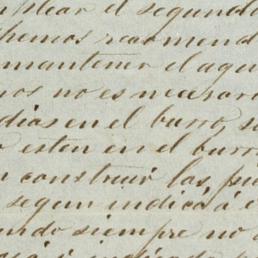 plear el segundo
hemos recomend
mantener el agu
nos no es necesari
dias en el burro, s
esten en el burr
construir las pu
segun indica á c
ndo siempre no